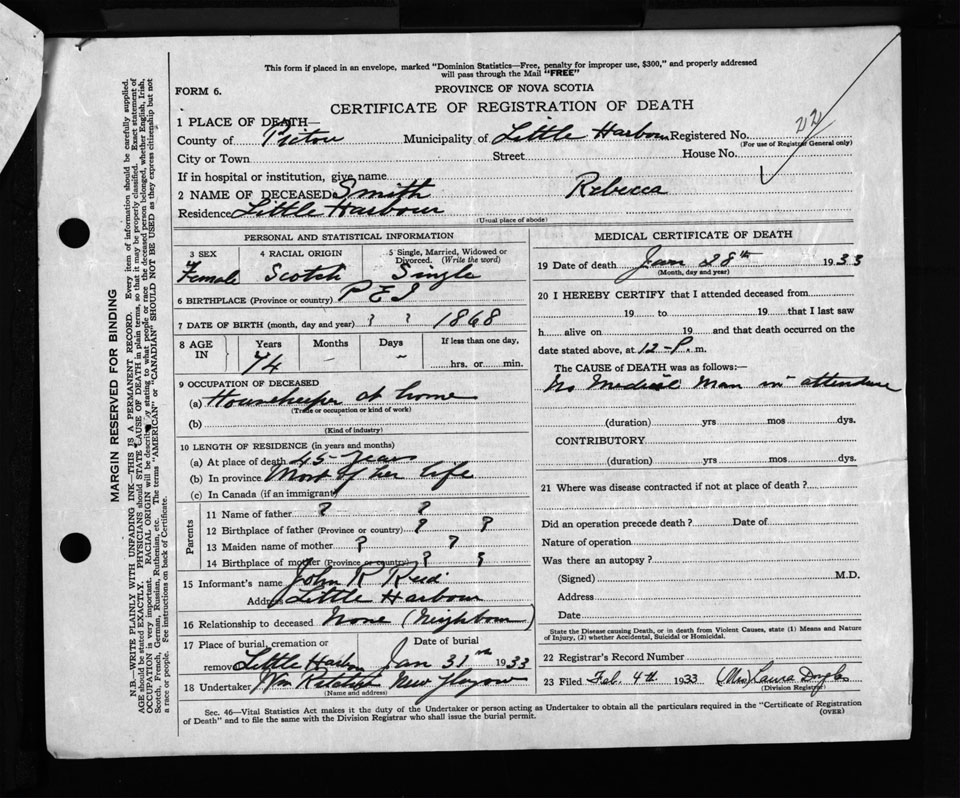 This form if placed in an envelope, marked "Dominion Statistics—Free, penalty for improper use, $300," and properly addressed
will pass through the Mail "FREE"
FORM 6.
PROVINCE OF NOVA SCOTIA
CERTIFICATE OF REGISTRATION OF DEATH
1 PLACE OF DEATH—
County of Pictou Municipality of Little Harbour Registered No. 22
(For use of Registrar General only)
City or Town Street House No.
If in hospital or institution, give name
2 NAME OF DECEASED Smith Rebecca
Residence Little Harbour
(Usual place of abode)
PERSONAL AND STATISTICAL INFORMATION
3 SEX 4 RACIAL ORIGIN 5 Single, Married, Widowed or
Divorced. (Write the word)
Female Scotch Single
6 BIRTHPLACE (Province or country) P E I
7 DATE OF BIRTH (month, day and year) ? ? 1868
8 AGE IN Years Months Days If less than one day,
74 – – hrs. or min.
9 OCCUPATION OF DECEASED
(a) Housekeeper at home
(Trade or occupation or kind of work)
(b)
(Kind of industry)
10 LENGTH OF RESIDENCE (in years and months)
(a) At place of death 45 years
(b) In province Most of her life
(c) In Canada (if an immigrant)
Parents
11 Name of father ? ?
12 Birthplace of father (Province or country) ? ?
13 Maiden name of mother ? ?
14 Birthplace of mother (Province or country) ? ?
15 Informant's name John R Reid
Address Little Harbour
16 Relationship to deceased None (Neighbour)
17 Place of burial, cremation or Date of burial
removal Little Harbour Jan 31 1933
18 Undertaker Wm New Glasgow
(Name and address)
MEDICAL CERTIFICATE OF DEATH
19 Date of death Jan 28th 1933
(Month, day and year)
20 I HEREBY CERTIFY that I attended deceased from
19 to 19 that I last saw
h alive on 19 and that death occurred on
date stated above, at 12-P. m.
The CAUSE of DEATH was as follows:—
No Medical Man in attendance
(duration) yrs mos dys.
CONTRIBUTORY
(duration) yrs mos dys.
21 Where was disease contracted if not at place of death?
Did an operation precede death? Date of
Nature of operation
Was there an autopsy?
(Signed) M.D.
Address
Date
State the Disease causing Death, or in death from Violent Causes, state (1) Means and Nature
of Injury, (2) whether Accidental, Suicidal or Homicidal.
22 Registrar's Record Number
23 Filed Feb. 4th 1933 (Mrs) Laura
(Division Registrar)
Sec. 46—Vital Statistics Act makes it the duty of the Undertaker or person acting as Undertaker to obtain all the particulars required in the "Certificate of Registration
of Death" and to file the same with the Division Registrar who shall issue the burial permit.
(OVER)
MARGIN RESERVED FOR BINDING
N.B.—WRITE PLAINLY WITH UNFADING INK—THIS IS A PERMANENT RECORD. Every item of information should be carefully supplied.
AGE should be stated EXACTLY. PHYSICIANS should STATE CAUSE OF DEATH in plain terms, so that it may be properly classified. Exact statement of
OCCUPATION is very important. RACIAL ORIGIN will be described by stating to what people or race the deceased person belonged, whether English, Irish,
Scotch, French, German, Russian, Ruthenian, etc. The terms "AMERICAN" or "CANADIAN" SHOULD NOT BE USED as they express citizenship but not
a race or people. See instructions on back of Certificate.